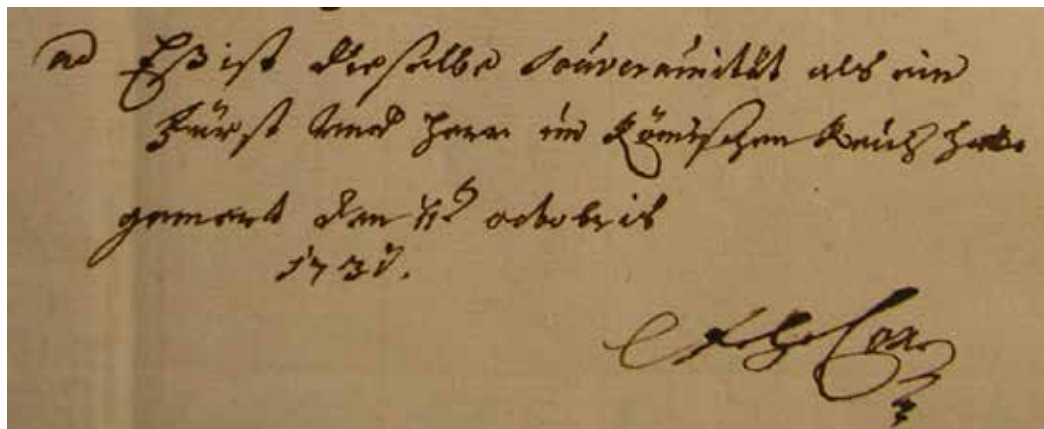 ad Eß ist dieselbe Souverainität als ein
Fürst und Herr im Römischen Reich hatt
den 11t octobris
1737.